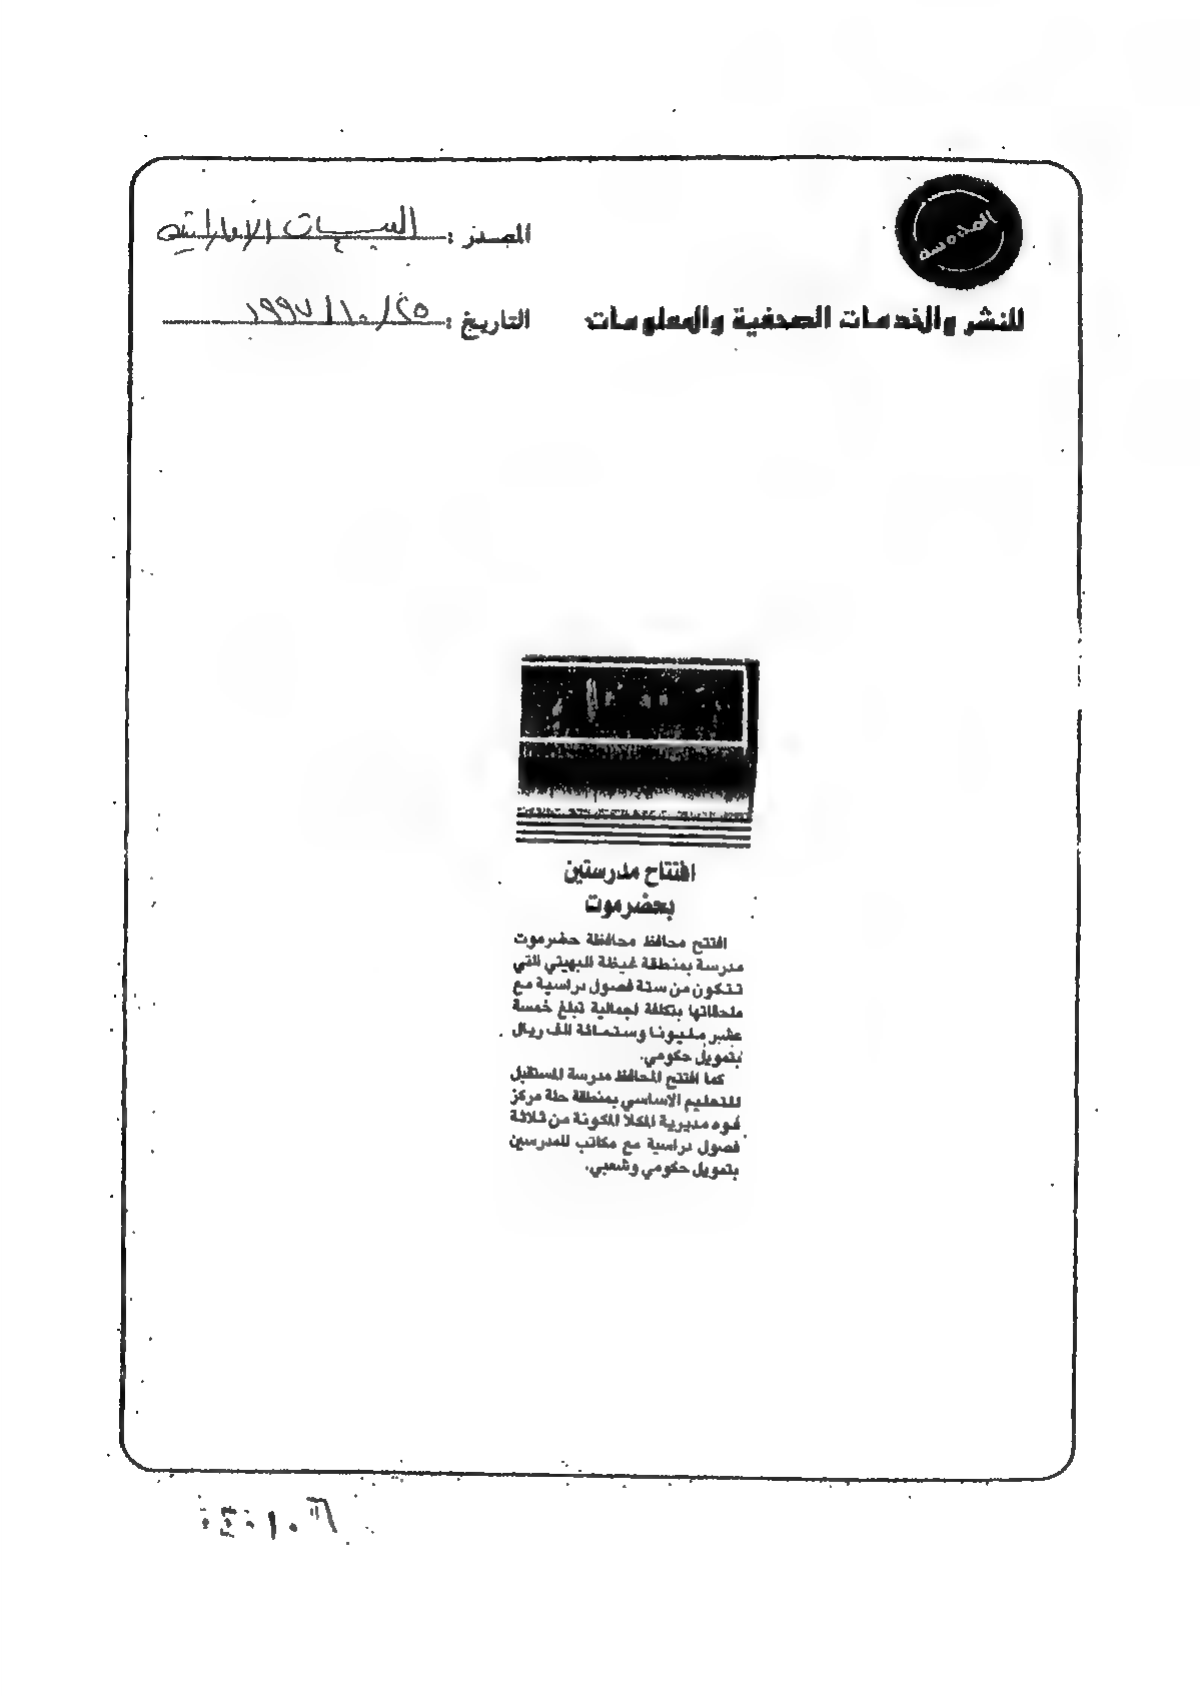 المصدر : البيان الإماراتية
التاريخ : ٢٥/١٠/١٩٩٧
للنشر والخدمات الصحفية والمعلومات
افتتاح مدرستين
بحضرموت
افتتح محافظ محافظة حضرموت
مدرسة بمنطقة غيظة البهيتي التي
تتكون من ستة فصول دراسية مع
ملحقاتها بتكلفة اجمالية تبلغ خمسة
عشر مليونا وستمائة الف ريال
بتمويل حكومي.
كما افتتح المحافظ مدرسة المستقبل
للتعليم الاساسي بمنطقة حلة مركز
فوه مديرية المكلا المكونة من ثلاثة
فصول دراسية مع مكاتب للمدرسين
بتمويل حكومي وشعبي.